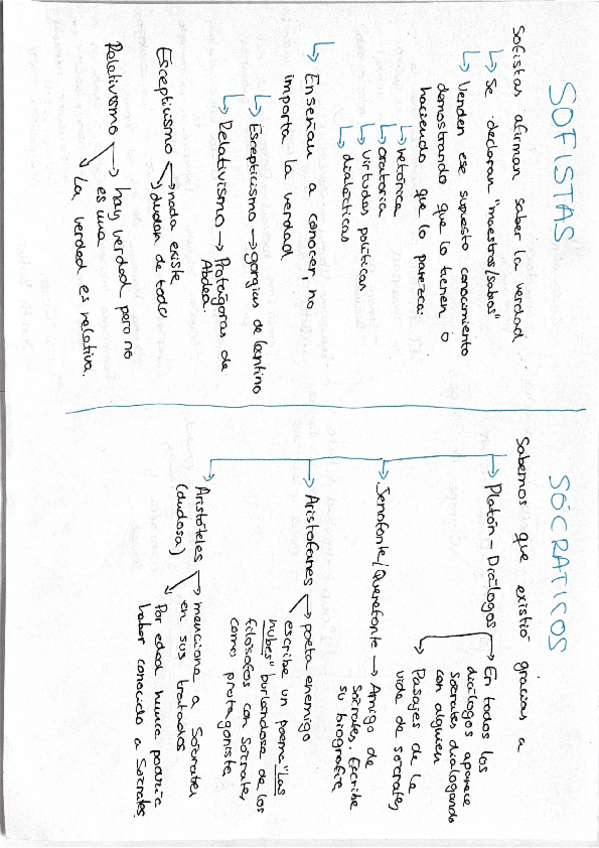 SOFISTAS
Sofistas afirman saber la verdad
↳ Se declaran "maestros/sabios"
↳ Venden ese supuesto conocimiento
demostrando que lo tienen o
haciendo que lo parezca:
↳ retórica
↳ oratoria
↳ virtudes políticas
↳ dialécticas
↳ Enseñan a conocer, no
importa la verdad
↳ Escepticismo → gorgias de Leontino
↳ Relativismo → Protágoras de
Abdea.
Escepticismo → nada existe
↘ dudan de todo
Relativismo → hay verdad pero no
es una
↘ La verdad es relativa.
SÓCRATICOS
Sabemos que existió gracias a
Platón - Diálogos → En todos los
diálogos aparece
Sócrates dialogando
con alguien
↳ Pasajes de la
vida de sócrates,
Jenofonte/Querefonte → Amigo de
Sócrates. Escribe
su biografía
Aristófanes → poeta enemigo
escribe un poema "Las
nubes" burlandose de los
filósofos con Sócrates,
como protagonista
Aristóteles → menciona a Sócrates
(dudosa) en sus tratados
↓ Por edad nunca podría
haber conocido a Sócrates.